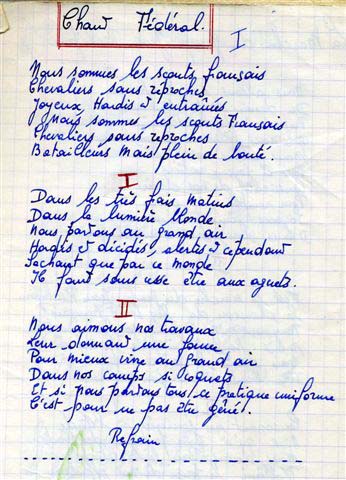 Chant Fédéral.
I
Nous sommes les scouts français
Chevaliers sans reproches
Joyeux, Hardis et entraînés
Nous sommes les scouts Français
Chevaliers sans reproches
Batailleurs mais plein de bonté.
I
Dans les très fais matins
Dans la lumière blonde
Nous partons au grand air
Hardis et décidés, alertes et cependant
Sachant que par ce monde
Il faut sans cesse être aux aguets.
II
Nous aimons nos travaux
Leur donnant une
Pour mieux vivre au grand air
Dans nos camps si coquets
Et si nous portons tous ce pratique uniforme
C'est pour ne pas être gêné.
Refrain